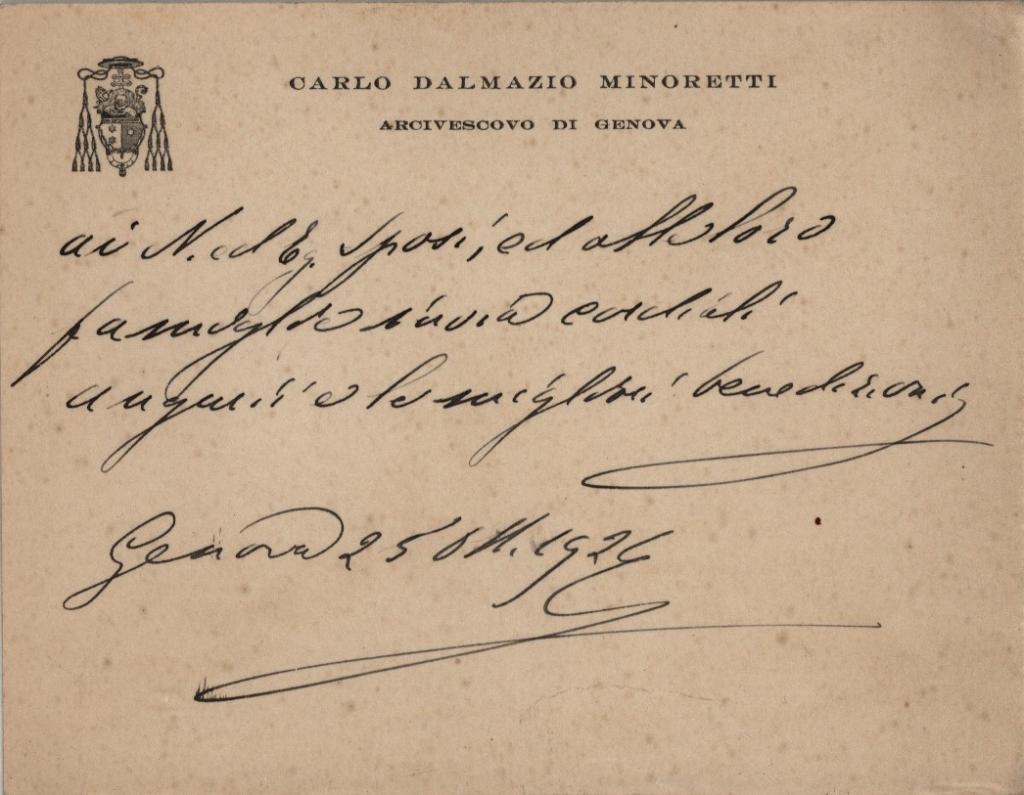 CARLO DALMAZIO MINORETTI
ARCIVESCOVO DI GENOVA
ai N. ed Eg. Sposi, ed alle loro
famiglie invia cordiali
augurii e le migliori benedizioni
Genova 25 Ott. 1926